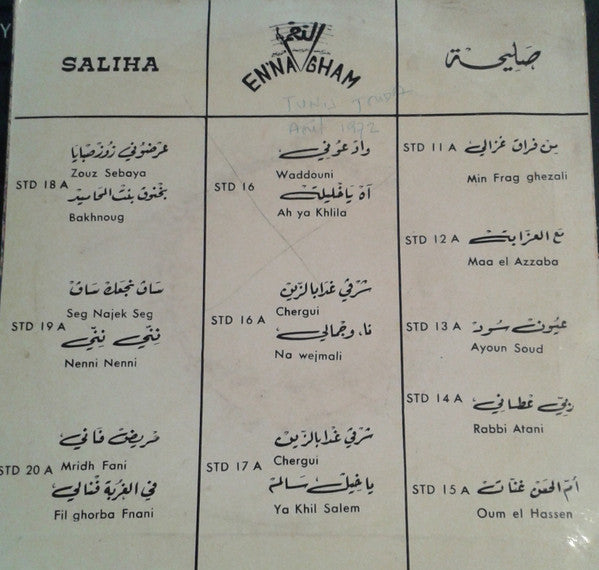 SALIHA
النغم
EN'NAGHAM
صليحة
Tunis
Août 1972
عرضوني زوز صبايا
Zouz Sebaya
STD 18 A
بخنوق بنت المحاميد
Bakhnoug
ساق نجعك ساق
Seg Najek Seg
STD 19 A
نني نني
Nenni Nenni
مريض فاني
STD 20 A Mridh Fani
في الغربة فناني
Fil ghorba Fnani
وادعوني
Waddouni
STD 16
آه يا خليلة
Ah ya Khlila
شرقي غدا بالزين
Chergui
STD 16 A
نا وجمالي
Na wejmali
شرقي غدا بالزين
Chergui
STD 17 A
يا خيل سالم
Ya Khil Salem
STD 11 A من فراق غزالي
Min Frag ghezali
مع العزابة
STD 12 A
Maa el Azzaba
STD 13 A عيون سود
Ayoun Soud
STD 14 A ربي عطاني
Rabbi Atani
STD 15 A أم الحسن غنات
Oum el Hassen